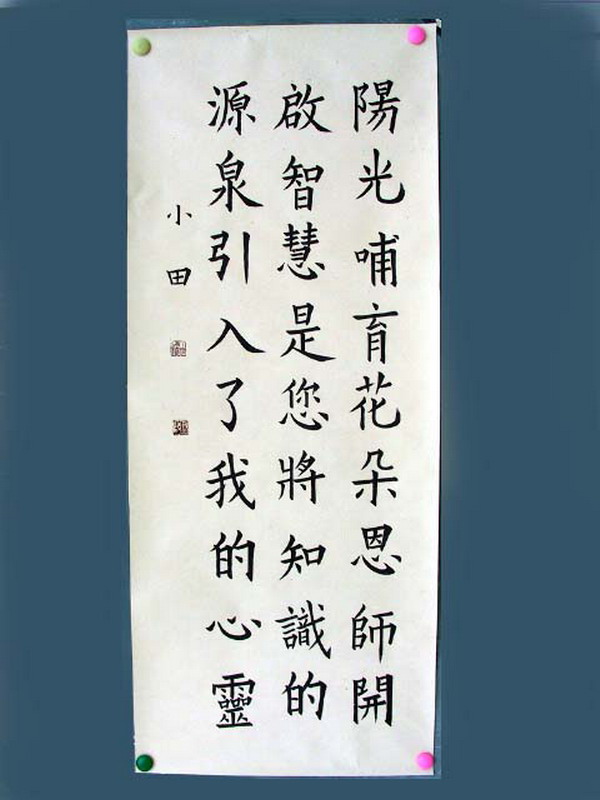 陽光哺育花朵恩師開
啟智慧是您將知識的
源泉引入了我的心靈
小田